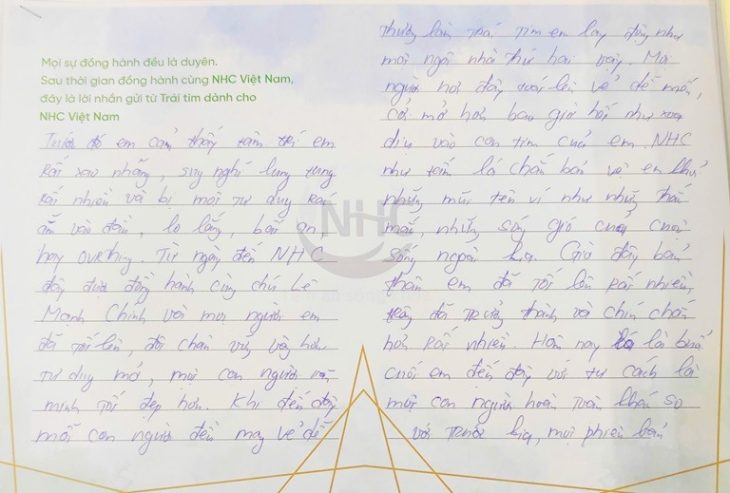 Mọi sự đồng hành đều là duyên.
Sau thời gian đồng hành cùng NHC Việt Nam,
đây là lời nhắn gửi từ Trái tim dành cho
NHC Việt Nam
Trước đó em cảm thấy tâm trí em
rất xao nhãng, suy nghĩ lung tung
rất nhiều và bị mọi tư duy
ăn vào đầu, lo lắng, bất an,
hay overthing. Từ ngày đến NHC
đây được đồng hành cùng chú Lê
Mạnh Chính với mọi người em
đã tốt lên, đôi chân vững vàng hơn
tư duy mở, một con người
mình tốt đẹp hơn. Khi đến đây
mỗi con người đến mang vẻ dễ
thương làm trái tim em lay động như
một ngôi nhà thứ hai vậy. Mọi
người nơi đây vui lên vẻ dễ mến,
cởi mở hơn bao giờ hết như xoa
dịu vào con tim của em. NHC
như tấm lá chắn bảo vệ em khỏi
những mũi tên ví như những thắc
mắc, những sóng gió của cuộc
sống ngoài kia. Giờ đây bản
thân em đã tốt lên rất nhiều,
đã trưởng thành và chín chắn
hơn rất nhiều. Hôm nay là buổi
cuối em đến đây với tư cách là
một con người hoàn toàn khác so
với trước kia, mọi phiên bản
NHC